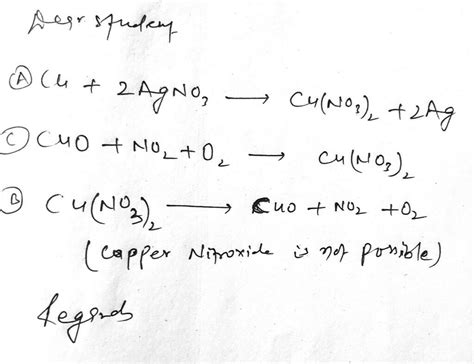 Dear student
Ⓐ Cu + 2AgNO₃ ⟶ Cu(NO₃)₂ + 2Ag
Ⓒ CuO + NO₂ + O₂ ⟶ Cu(NO₃)₂
Ⓑ Cu(NO₃)₂ ⟶ CuO + NO₂ + O₂
(Copper Nitroxide is not possible)
Regards